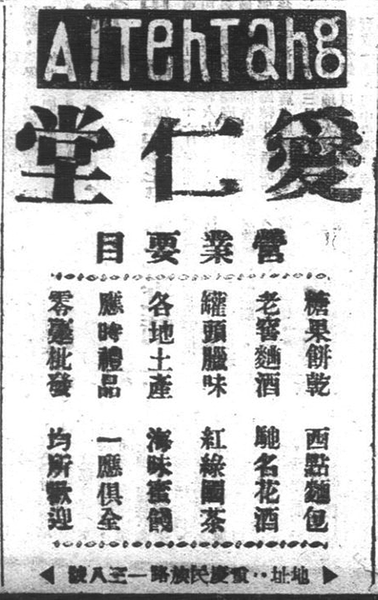 AITenTang
愛仁堂
營業要目
糖果餅乾 西點麵包
老窖麯酒 馳名花酒
罐頭臘味 紅綠園茶
各地土產 海味蜜餞
應時禮品 一應俱全
零躉批發 均所歡迎
地址：重慶民族路一三八號